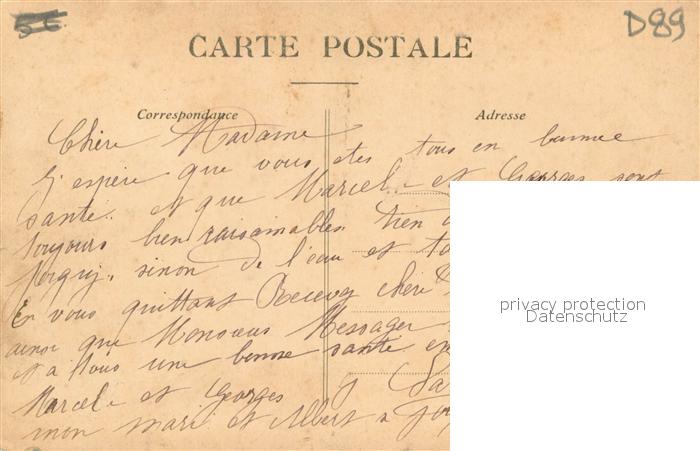 5c D89
CARTE POSTALE
Correspondance Adresse
Chère Madame
J'espère que vous etes tous en bonnee
santé. et que Marcel. et Georges sont
toujours bien raisonnables. rien
sinon de l'eau et
En vous quittant Recevez chère
ainsi que Monsieur Messager
et a tous une bonne santé en
Marcel. et Georges j
mon mari et Albert a
privacy protection
Datenschutz